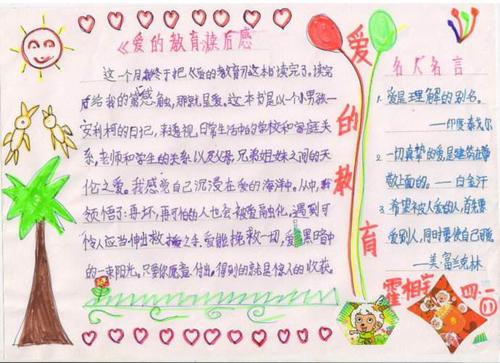 《爱的教育读后感
这个月我终于把《爱的教育》这本书读完了。读完
后给我的感触,那就是爱。这本书是以一个小男孩—
安利柯的日记,来透视。日常生活中的学校和家庭关
系,老师和学生的关系以及父母、兄弟姐妹之间的天
伦之爱。我感觉自己沉浸在爱的海洋中。从中,我
领悟了:再坏,再可怕的人也会被爱融化。遇到可
怜人应当伸出救援之手。爱能挽救一切,爱是黑暗中
的一束阳光。只要你愿意付出,得到的就是惊人的收获。
爱的教育
名人名言
1. 爱是理解的别名。
——印度泰戈尔
2. 一切真挚的爱是建筑在尊
敬上面的。——白金汉
3. 希望被人爱的人,首先要
爱别人,同时要使自己可爱
——美·富兰克林
霍相
四.二
11